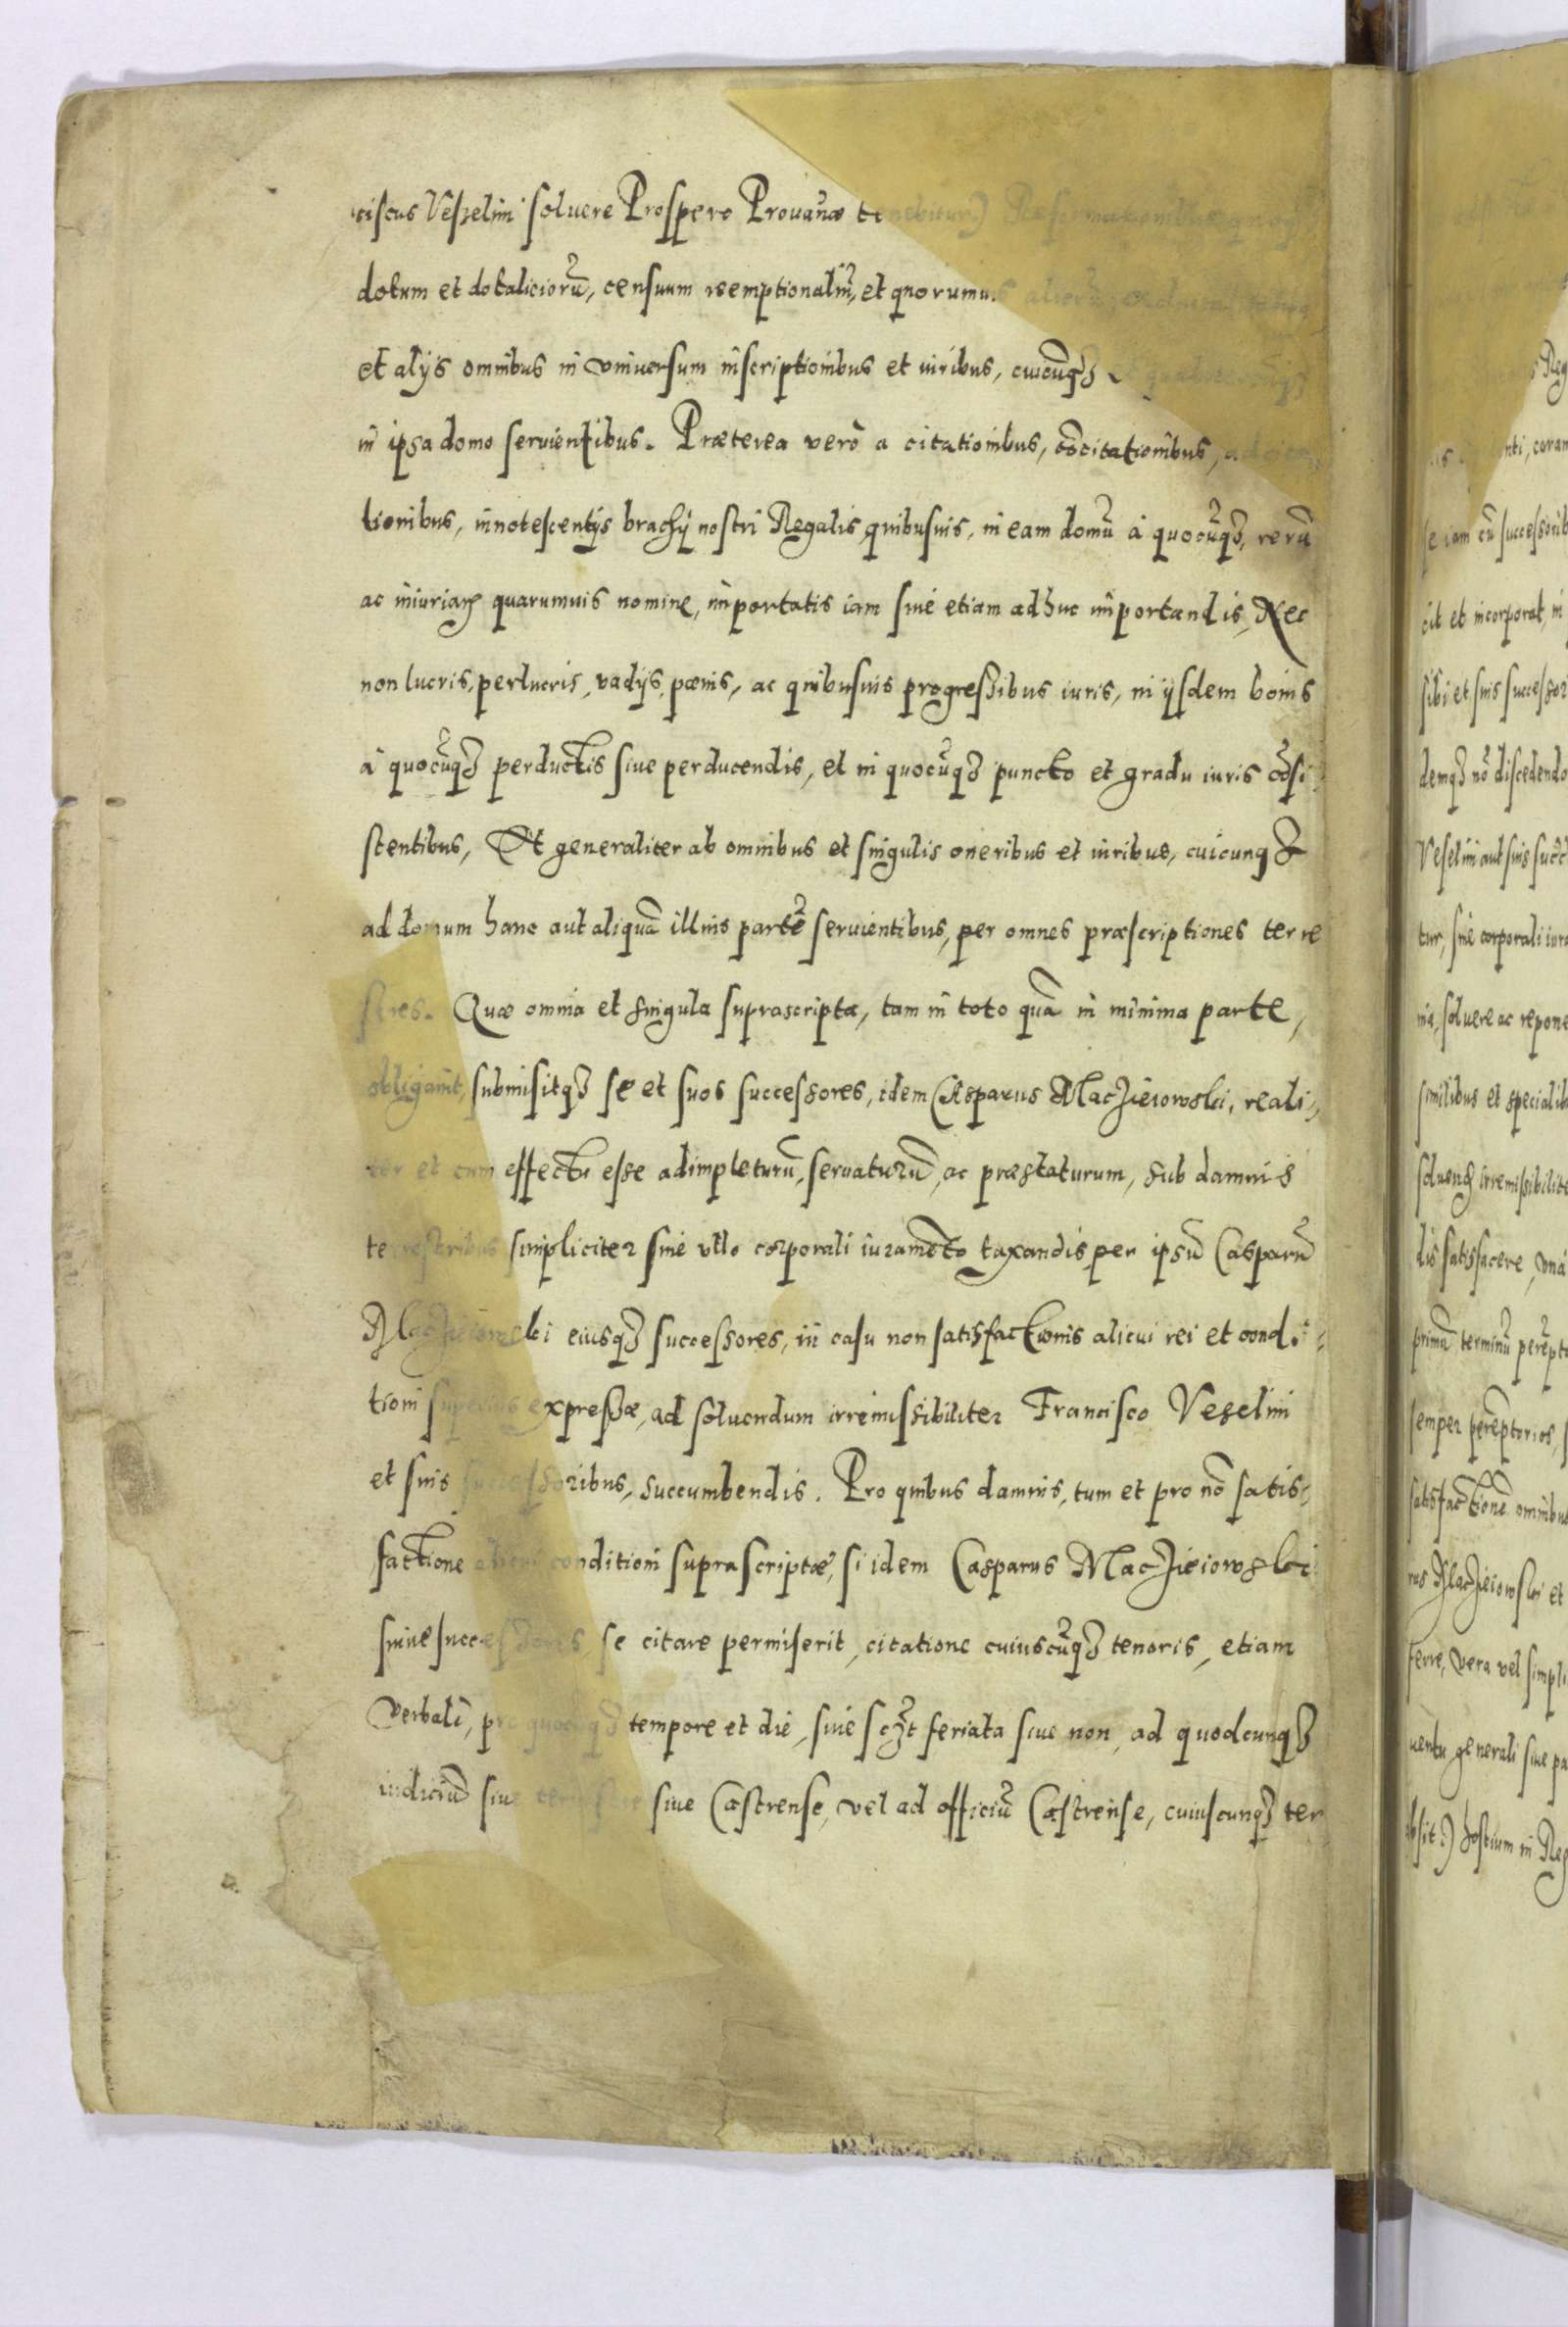 ciscus Veselini soluere Prospero Prouanæ tenebitur) Reformationibus
dotum et dotalicioru᷈, censuum reemptionaliu᷈, et quorumuis alioru᷈,
et alijs omnibus in vniuersum inscriptionibus et iuribus, cuicu᷈qȝ
in ipsa domo seruientibus. Præterea verò a citationibus, co᷈citationibus,
tionibus, innotescentijs brachij nostri Regalis quibusuis, in eam domu᷈ à quocu᷈qȝ, reru᷈
ac iniuriaꝝ quarumuis nomine, importatis iam siue etiam adhuc importandis, Nec
non lucris, perlucris, vadijs, pœnis, ac quibusuis progressibus iuris, in ijsdem bonis
à quocu᷈qȝ perductis siue perducendis, et in quocu᷈qȝ puncto et gradu iuris co᷈si-
stentibus, Et generaliter ab omnibus et singulis oneribus et iuribus, cuicunqȝ
ad domum hanc aut aliqua᷈ illius parte᷈ seruientibus, per omnes præscriptiones terre
stres. Quæ omnia et singula suprascripta, tam in toto qua᷈ in minima parte,
obligauit, submisitqȝ se et suos successores, idem Casparus Maczieiowski, reali-
ter et cum effectu esse adimpleturu᷈, seruaturu᷈, ac præstaturum, sub damnis
terrestribus simpliciter sine vllo corporali iurame᷈to taxandis per ipsu᷈ Casparu᷈
Maczieiowski eiusqȝ successores, in casu non satisfactionis alicui rei et condi-
tioni superius expressæ, ad soluendum irremissibiliter Francisco Veselini
et suis successoribus, succumbendis. Pro quibus damnis, tum et pro no᷈ satis-
factione alicui conditioni suprascriptæ, si idem Casparus Maczieiowski
suiue successores se citare permiserit, citatione cuiuscu᷈qȝ tenoris, etiam
verbali, pro quocu᷈qȝ tempore et die, siue sczt feriata siue non, ad quodcunqȝ
iudiciu᷈ siue terrestre siue Castrense, vel ad officiu᷈ Castrense, cuiuscunqȝ ter